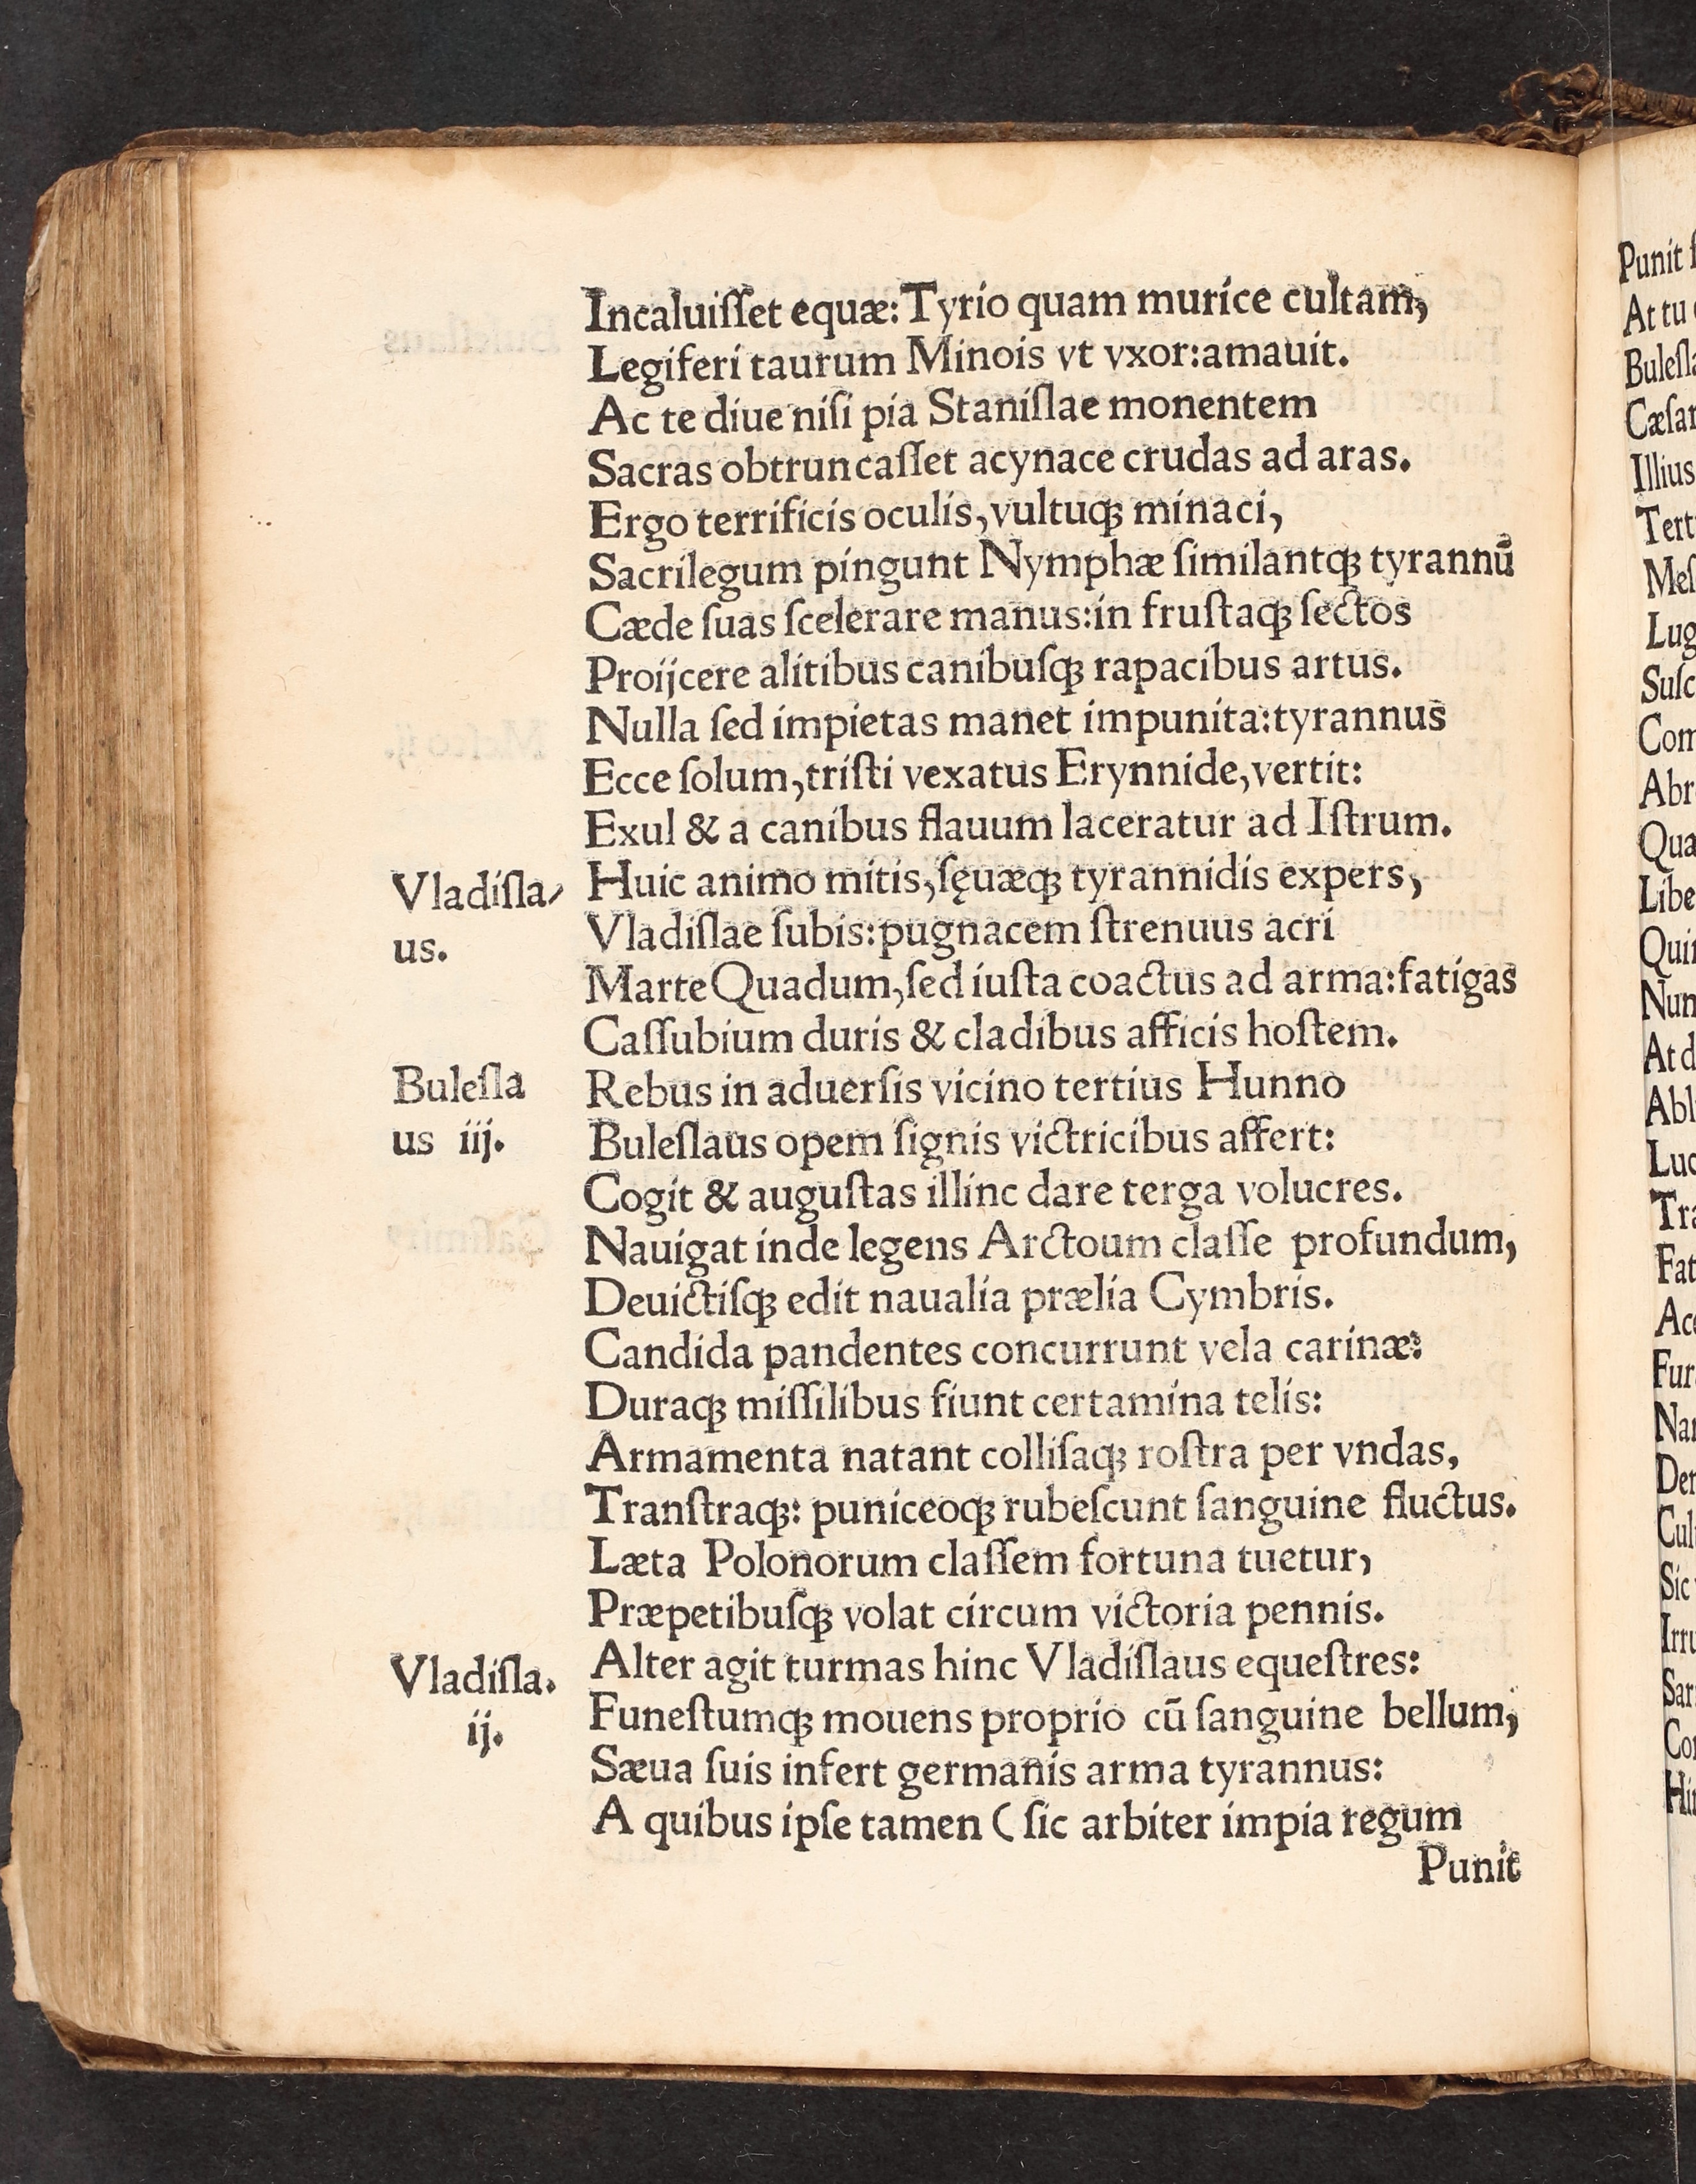 Incaluiſſet equæ:Tyrio quam murice cultam,
Legiferi taurum Minois vt vxor:amauit.
Ac te diue niſi pia Staniſlae monentem
Sacras obtruncaſſet acynace crudas ad aras.
Ergo terrificis oculis,vultuqꝫ minaci,
Sacrilegum pingunt Nymphæ ſimilantqꝫ tyrannū
Cæde ſuas ſcelerare manus:in fruſtaqꝫ ſectos
Proijcere alitibus canibuſqꝫ rapacibus artus.
Nulla ſed impietas manet impunita:tyrannus
Ecce ſolum,triſti vexatus Erynnide,vertit:
Exul & a canibus flauum laceratur ad Iſtrum.
Vladiſla/
us.
Huic animo mitis,ſęuæqꝫ tyrannidis expers,
Vladiſlae ſubis:pugnacem ſtrenuus acri
Marte Quadum,ſed iuſta coactus ad arma:fatigas
Caſſubium duris & cladibus afficis hoſtem.
Buleſla
us iij.
Rebus in aduerſis vicino tertius Hunno
Buleſlaus opem ſignis victricibus affert:
Cogit & auguſtas illinc dare terga volucres.
Nauigat inde legens Arctoum claſſe profundum,
Deuictiſqꝫ edit naualia prælia Cymbris.
Candida pandentes concurrunt vela carinæ:
Duraqꝫ miſſilibus fiunt certamina telis:
Armamenta natant colliſaqꝫ roſtra per vndas,
Tranſtraqꝫ: puniceoqꝫ rubeſcunt ſanguine fluctus.
Læta Polonorum claſſem fortuna tuetur,
Præpetibuſqꝫ volat circum victoria pennis.
Vladiſla.
ij.
Alter agit turmas hinc Vladiſlaus equeſtres:
Funeſtumqꝫ mouens proprio cū ſanguine bellum,
Sæua ſuis infert germanis arma tyrannus:
A quibus ipſe tamen ( ſic arbiter impia regum
Punit
Punit
At tu
Buleſla
Cæſar
Illius
Tert
Meſ
Lug
Suſc
Com
Abr
Qua
Libe
Qui
Nun
At d
Abl
Luc
Tra
Fat
Ace
Fur
Nar
Der
Cul
Sic
Irru
Sar
Cor
Hi